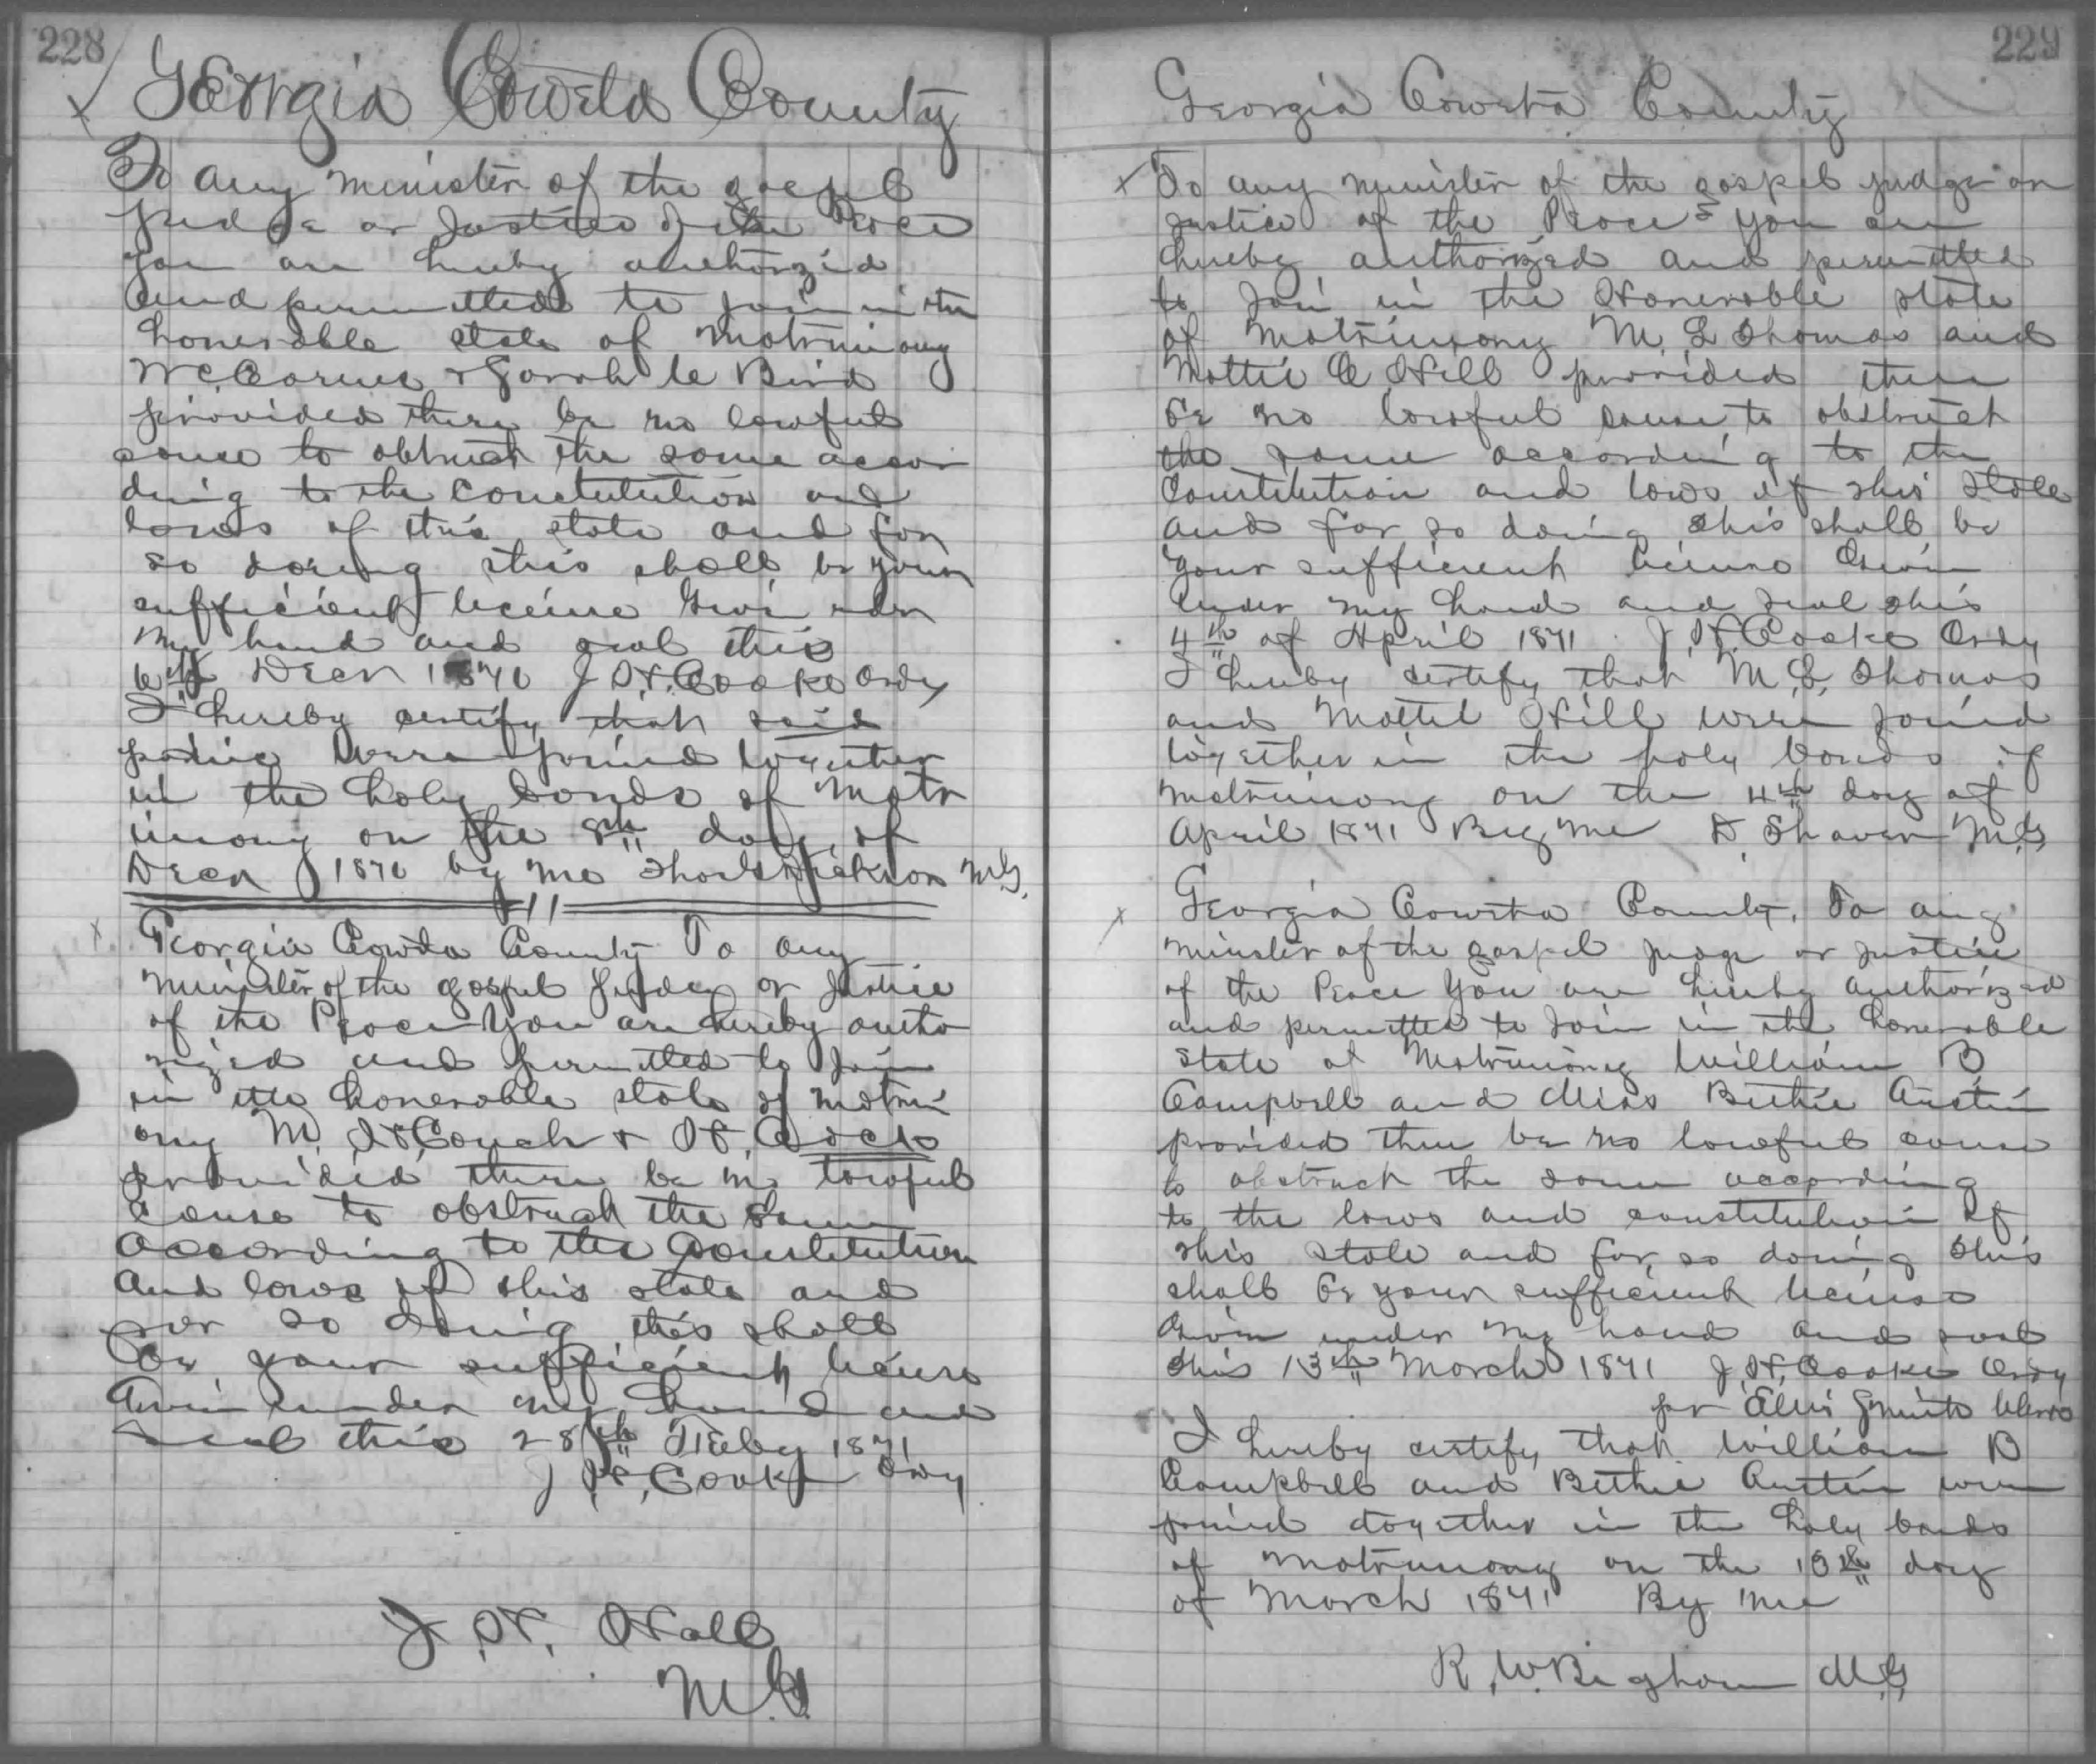 228
Georgia Coweta County
To any minister of the gospel
judge or Justice of the Peace
you are hereby authorized
and permitted to join in the
honerable state of matrimony
W C & Sarah Bird
provided there be no lawful
cause to obtruct the same accor
ding to the constitution and
laws of this state and for
so doing this shall be your
sufficient license Givi under
my hand and seal this
6th Decr 1870 J. H. Cooke Ordy
I hereby certify that said
parties were joined together
in the holy bonds of Matr
imony on the 8th day of
Decr 1870 by me M.G.
11
Georgia Coweta County To any
minister of the gospel Judge or Justice
of the Peace You are hereby autho
rized and permitted to join
in the honerable state of matrim
ony M. H. Couch & H. Cock
provided there be no lawful
cause to obstruct the same
according to the Constitution
and laws of this state and
for so doing this shall
be your sufficient license
Given under my hand and
seal this 28th Feby 1871
J. H. Cooke Ordy
J. H. Hall
M.G.
229
Georgia Coweta County
To any minister of the gospel judge or
justice of the Peace you are
hereby authorized and permitted
to join in the Honerable state
of matrimony M. L Thomas and
Mattie C Hill provided there
be no lawful cause to obstruct
the same according to the
Constitution and laws of this state
and for so doing this shall be
your sufficient license Given
under my hand and seal this
4th of April 1871 J. H. Cooke Ordy
I hereby certify that M. L. Thomas
and Mattie Hill were joined
together in the holy bonds of
matrimony on the 4th day of
April 1871 By me D. Shaver M.G.
Georgia Coweta County. To any
minister of the gospel judge or justice
of the Peace You are hereby authorized
and permitted to join in the honerable
state of Matrimony William B
Campbell and Miss Bethie Austin
provided there be no lawful cause
to obstruct the same according
to the laws and constitution of
this state and for so doing this
shall be your sufficient license
Given under my hand and seal
this 13th March 1871 J. H. Cooke Ordy
pr Smith Clerk
I hereby certify that William B
Campbell and Bethie Austin were
joined together in the holy bonds
of matrimony on the 13th day
of March 1871 By me
R. W. Bigham M.G.